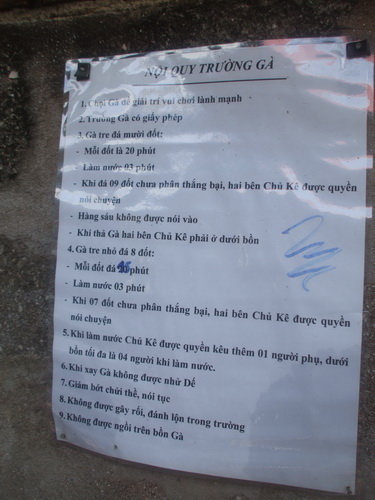 NỘI QUY TRƯỜNG GÀ
1. Chọi Gà để giải trí vui chơi lành mạnh
2. Trường Gà có giấy phép
3. Gà tre đá mười đốt:
- Mỗi đốt là 20 phút
- Làm nước 03 phút
- Khi đá 09 đốt chưa phân thắng bại, hai bên Chủ Kê được quyền
nói chuyện
- Hàng sáu không được nói vào
- Khi thả Gà hai bên Chủ Kê phải ở dưới bồn
4. Gà tre nhỏ đá 8 đốt:
- Mỗi đốt đá phút
- Làm nước 03 phút
- Khi 07 đốt chưa phân thắng bại, hai bên Chủ Kê được quyền
nói chuyện
5. Khi làm nước Chủ Kê được quyền kêu thêm 01 người phụ, dưới
bồn tối đa là 04 người khi làm nước.
6. Khi xay Gà không được nhử Dế
7. Giảm bớt chửi thề, nói tục
8. Không được gây rối, đánh lộn trong trường
9. Không được ngồi trên bồn Gà